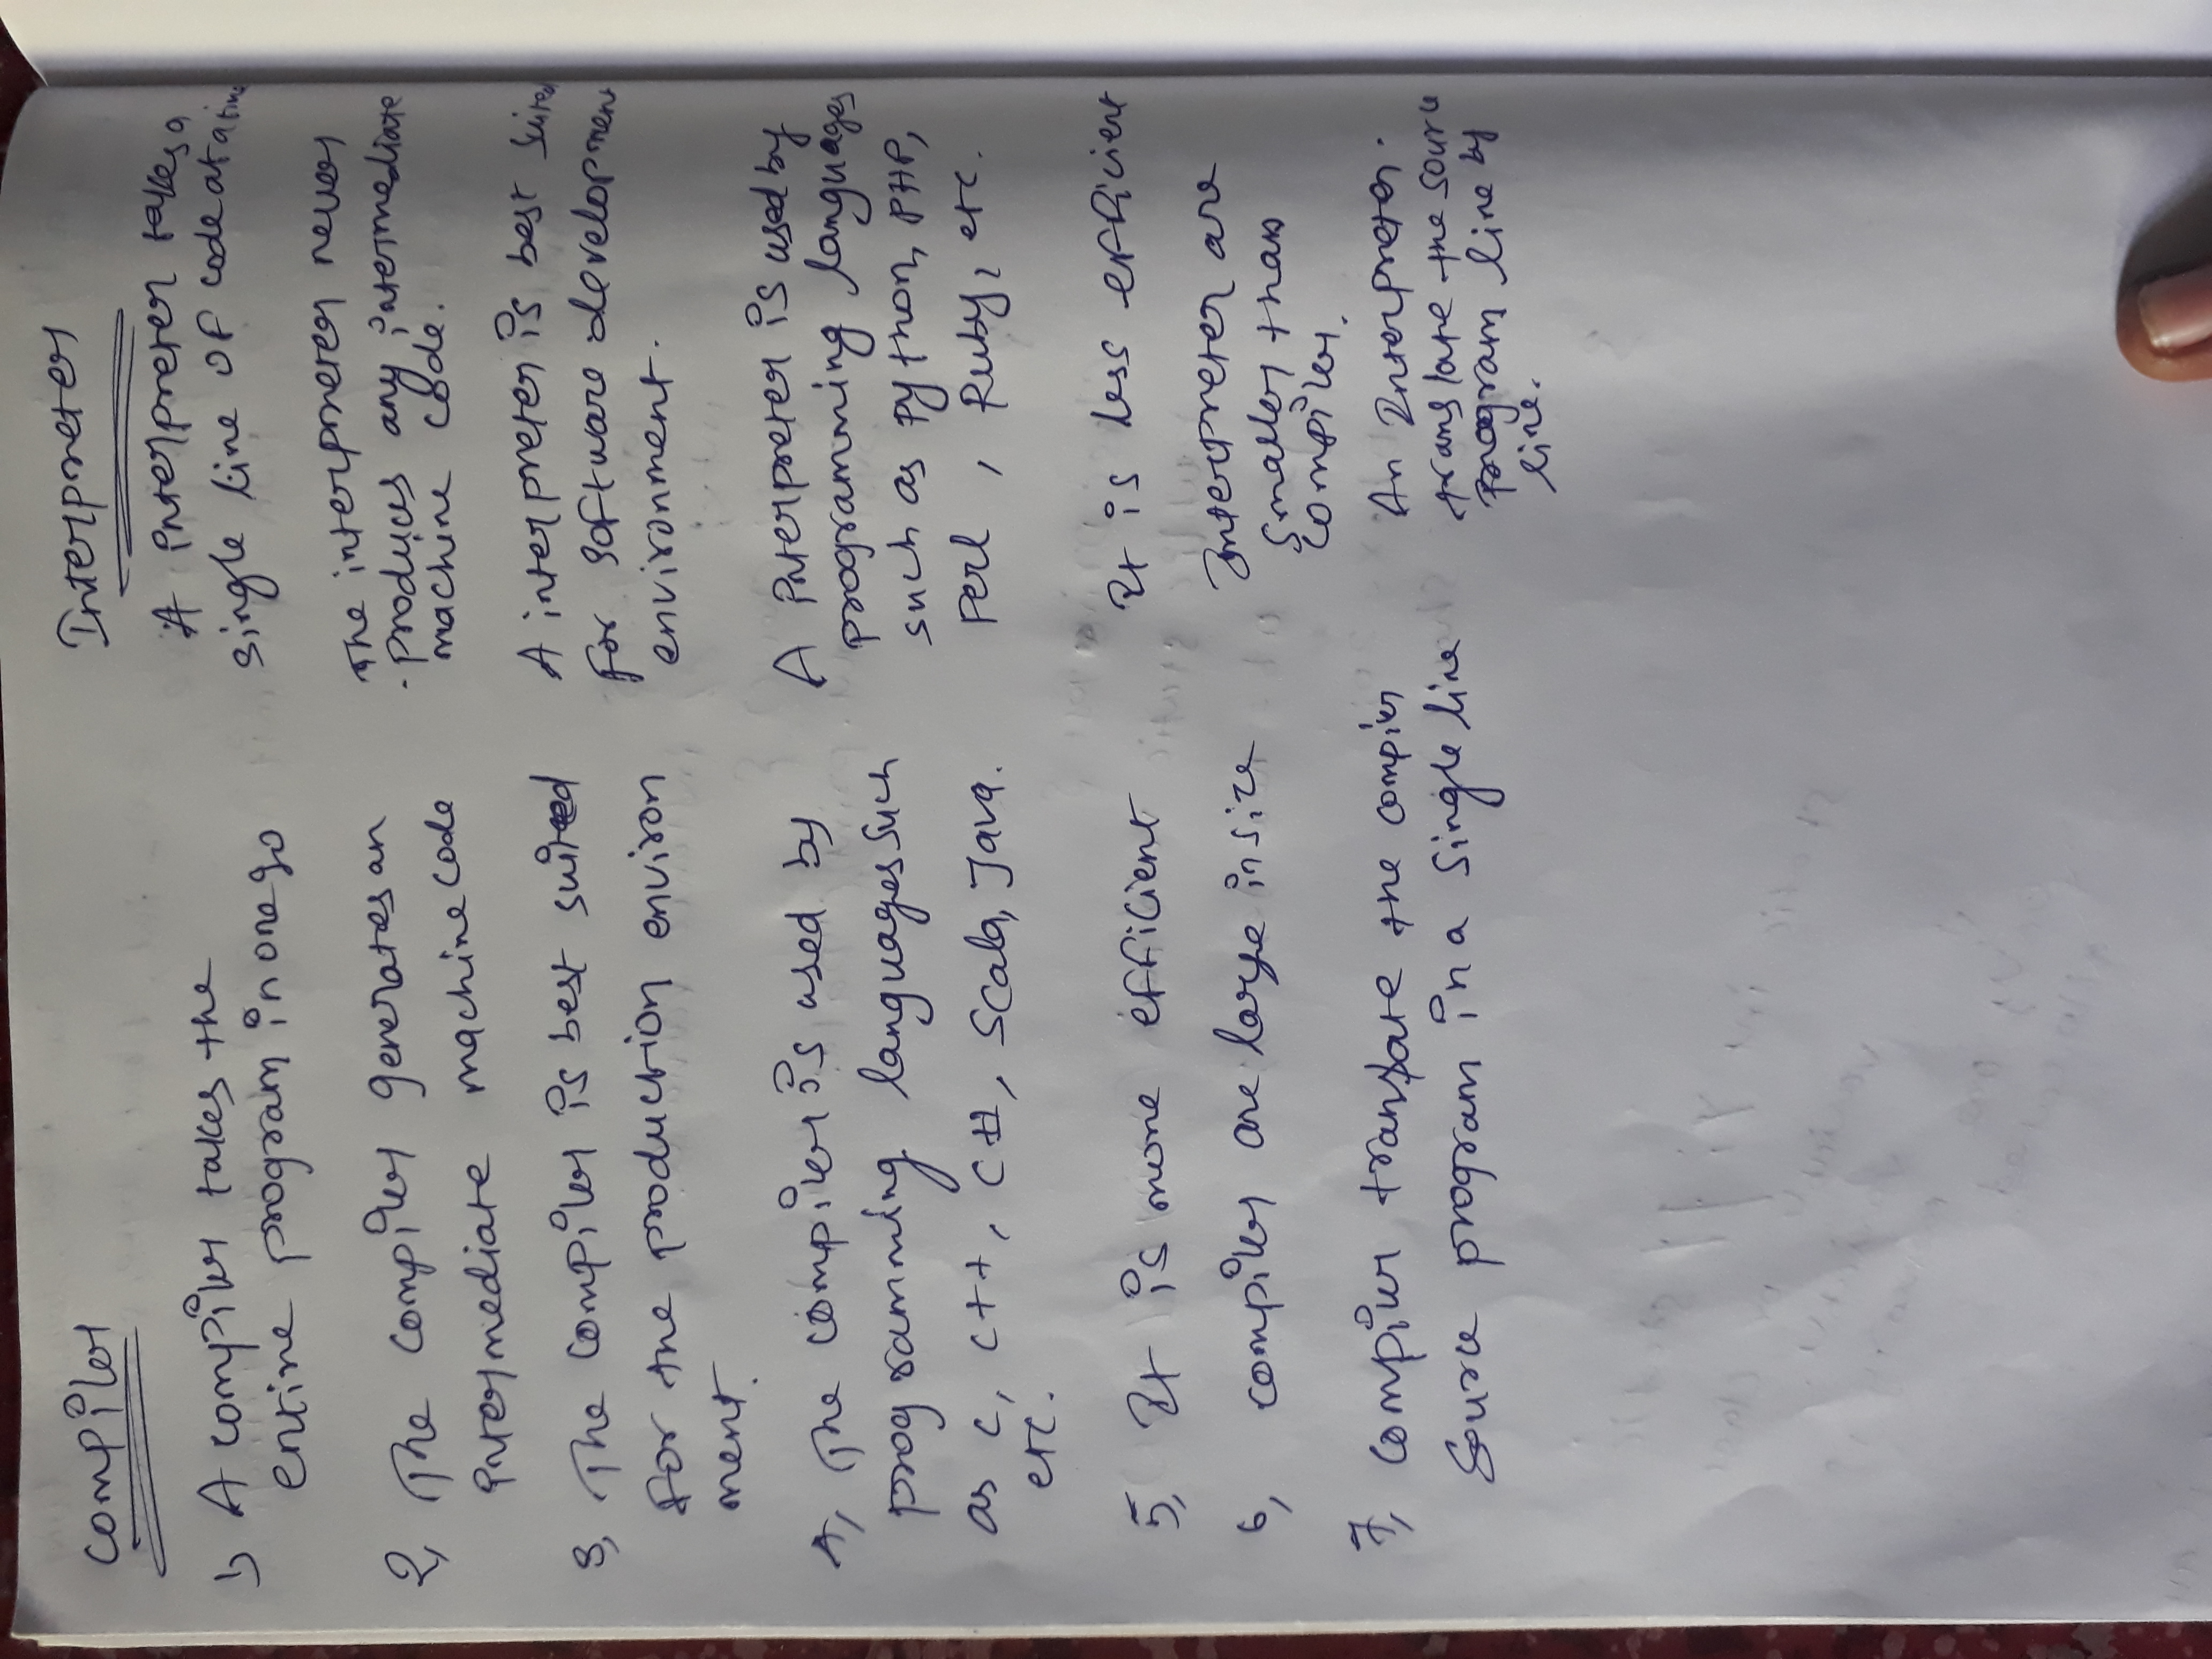 Compiler
1, A compiler takes the
entire program in one go
2, The compiler generates an
intermediate machine code
3, The compiler is best suited
for the production environ
ment.
4, The compiler is used by
programming languages such
as C, C++, C#, Scala, Java.
etc.
5, It is more efficient
6, compiler are large in size
7, compiler translate the compier
Source program in a single line
Interpreter
A interpreter takes a
single line of code at a time
The interpreter never
produces any intermediate
machine code.
A interpreter is best suited
for software development
environment.
A interpreter is used by
programming languages
such as python, PHP,
Perl, Ruby, etc.
It is less efficient
Interpreter are
smaller than
compiler.
An Interpreter.
translate the source
program line by
line.